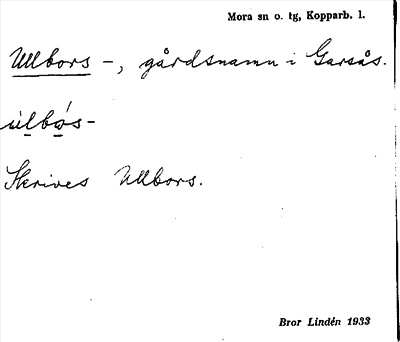 Mora sn o. tg, Kopparb. l.
Ullbors -, gårdsnamn i Garsås.
Skrives Ullbors.
Bror Lindén 1933